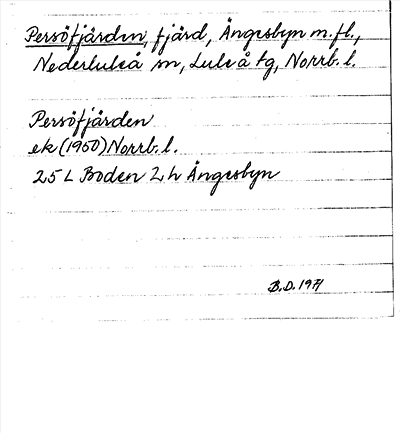 Persöfjärden, fjärd, Ängesbyn m.fl.,
Nederluleå sn, Luleå tg, Norrb. l.
Persöfjärden
ek (1950) Norrb. l.
25 L Boden 2 h Ängesbyn
B.D. 1971